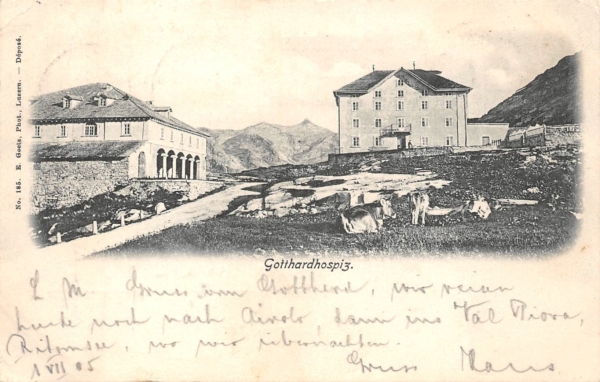 No. 185. E. Goetz, Phot., Luzern. — Déposé.
Gotthardhospiz.
L M. Gruss vom Gotthard, wir
heute noch nach Airolo, dann ins Val Piora,
Ritomsee, wo wir übernachten.
Gruss Hans
1 VII 05